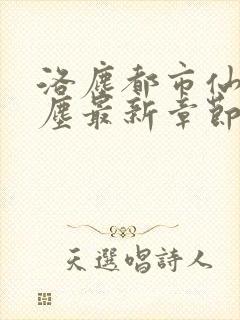 洛塵都市仙
塵最新章節
天選唱詩人